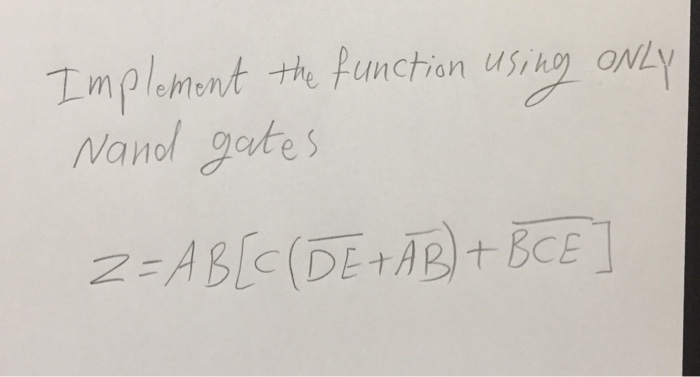 Implement the function using ONLY
Nand gates
Z=AB[C(\overline{DE}+\overline{AB})+\overline{BCE}]